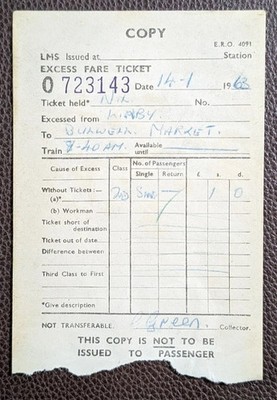 COPY
E.R.O. 4091
LMS Issued at Station
EXCESS FARE TICKET
O 723143 Date 14-1 1963
Ticket held* Nil No.
Excessed from KIRKBY.
To BULWELL MARKET.
Train 8-40AM. Available until
Cause of Excess Class No. of Passengers £ s. d.
Single Return
Without Tickets:—
(a)* 2nd Sing 1 0
(b) Workman
Ticket short of destination
Ticket out of date
Difference between
Third Class to First
*Give description
NOT TRANSFERABLE Green. Collector.
THIS COPY IS NOT TO BE
ISSUED TO PASSENGER